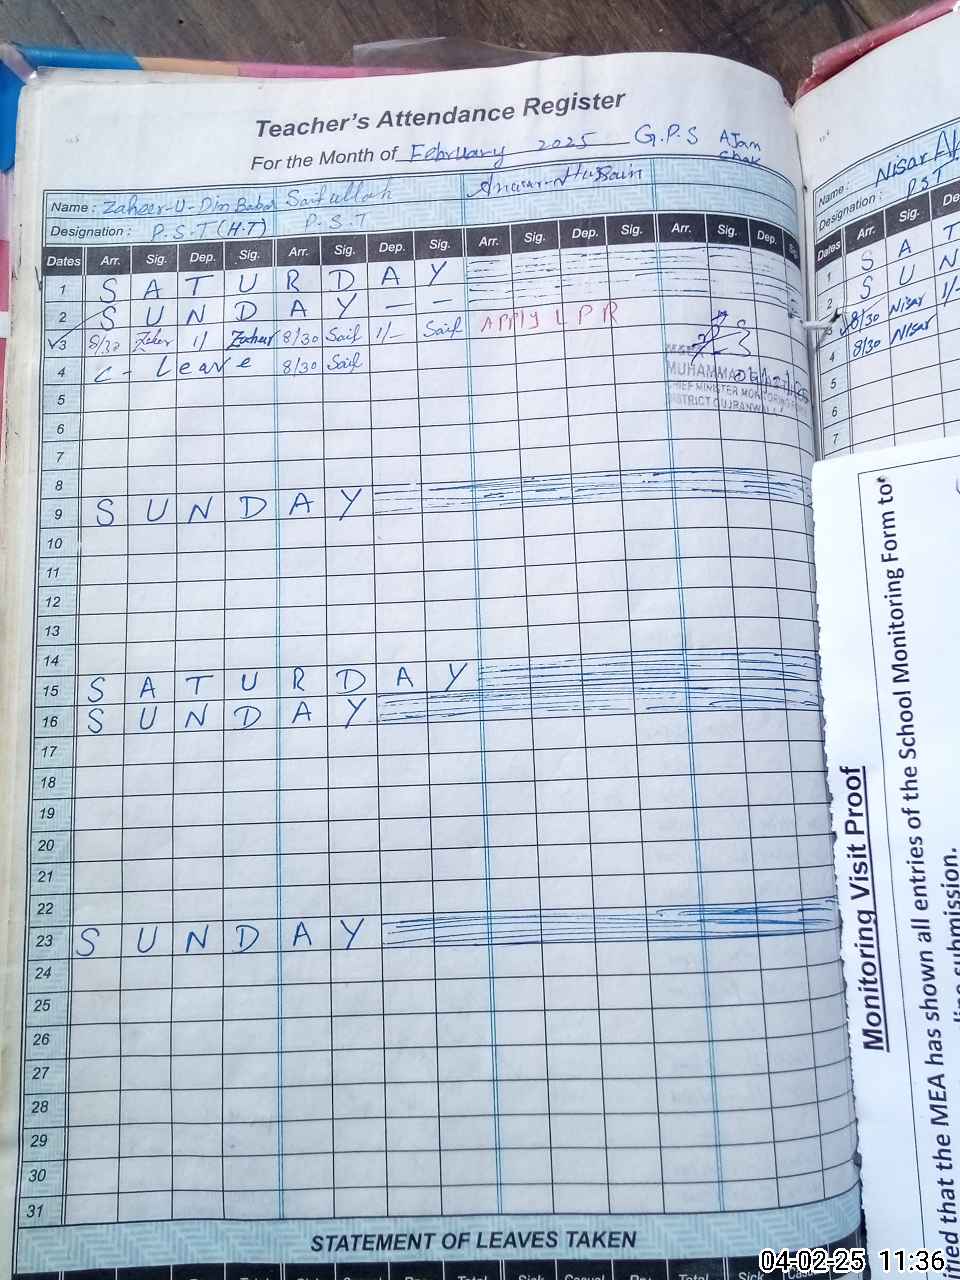 Teacher's Attendance Register
For the Month of February 2025 G.P.S AJam Chak
Name : Zaheer-U-Din Babar Saifullah Ansar Hussain
Designation : P.S.T (H.T) P.S.T
Dates Arr. Sig. Dep. Sig. Arr. Sig. Dep. Sig. Arr. Sig. Dep. Sig. Arr. Sig. Dep.
1 S A T U R D A Y
2 S U N D A Y - -
3 8/30 Zaheer 1/ Zaheer 8/30 Saif 1/- Saif APPly L P R
4 C - Leave 8/30 Saif
MUHAMMAD
CHIEF MINISTER MONITORING
DISTRICT GUJRANWALA
5
6
7
8
9 S U N D A Y
10
11
12
13
14
15 S A T U R D A Y
16 S U N D A Y
17
18
19
20
21
22
23 S U N D A Y
24
25
26
27
28
29
30
31
STATEMENT OF LEAVES TAKEN
Name : Nisar
Designation : PST
Dates Arr. Sig.
1 S A T
2 S U N
3 8/30 Nisar 1/-
4 8/30 Nisar
5
6
7
Monitoring Visit Proof
that the MEA has shown all entries of the School Monitoring Form to
submission.
04-02-25 11:36